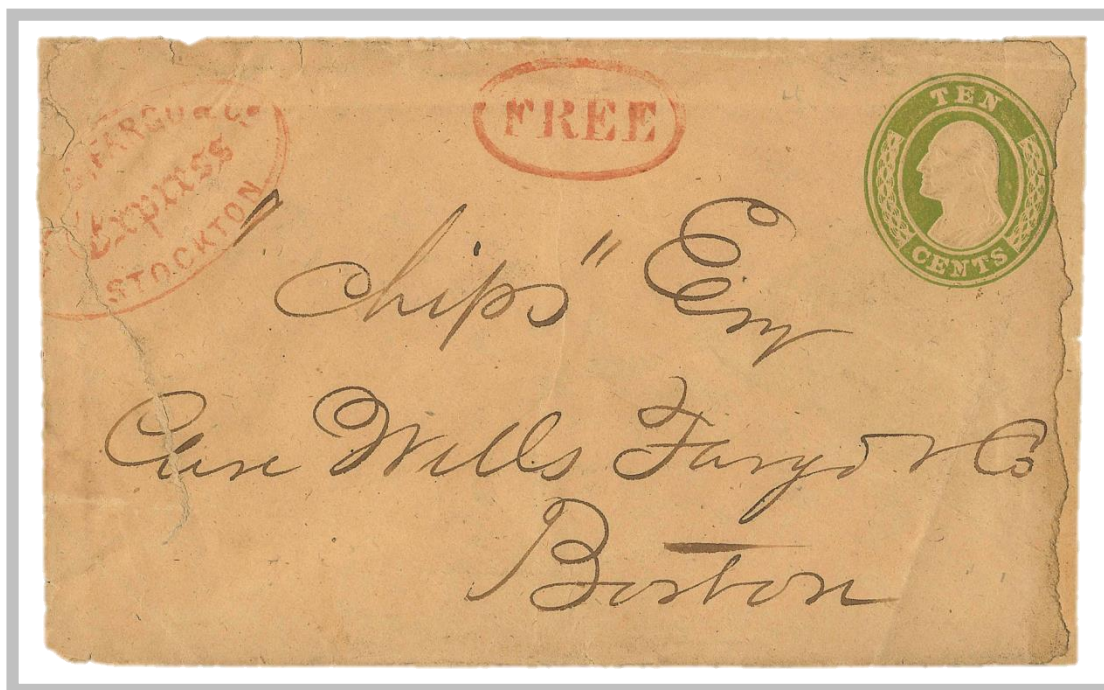 FARGO & Co.
Express
STOCKTON
FREE
TEN
CENTS
"Chips" Esq
Care Wells Fargo & Co
Boston